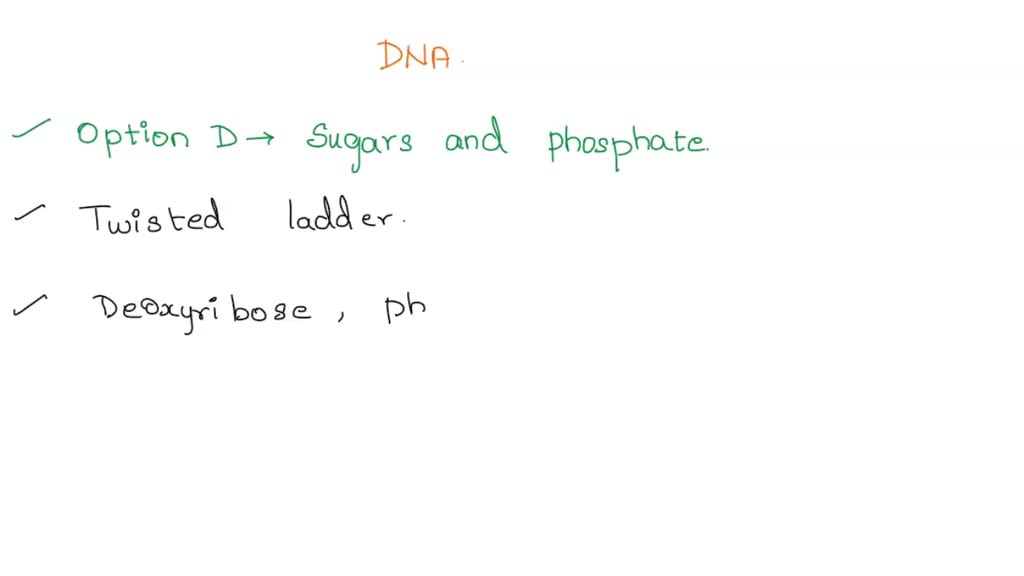 DNA.
Option D → Sugars and phosphate.
Twisted ladder.
Deoxyribose, ph